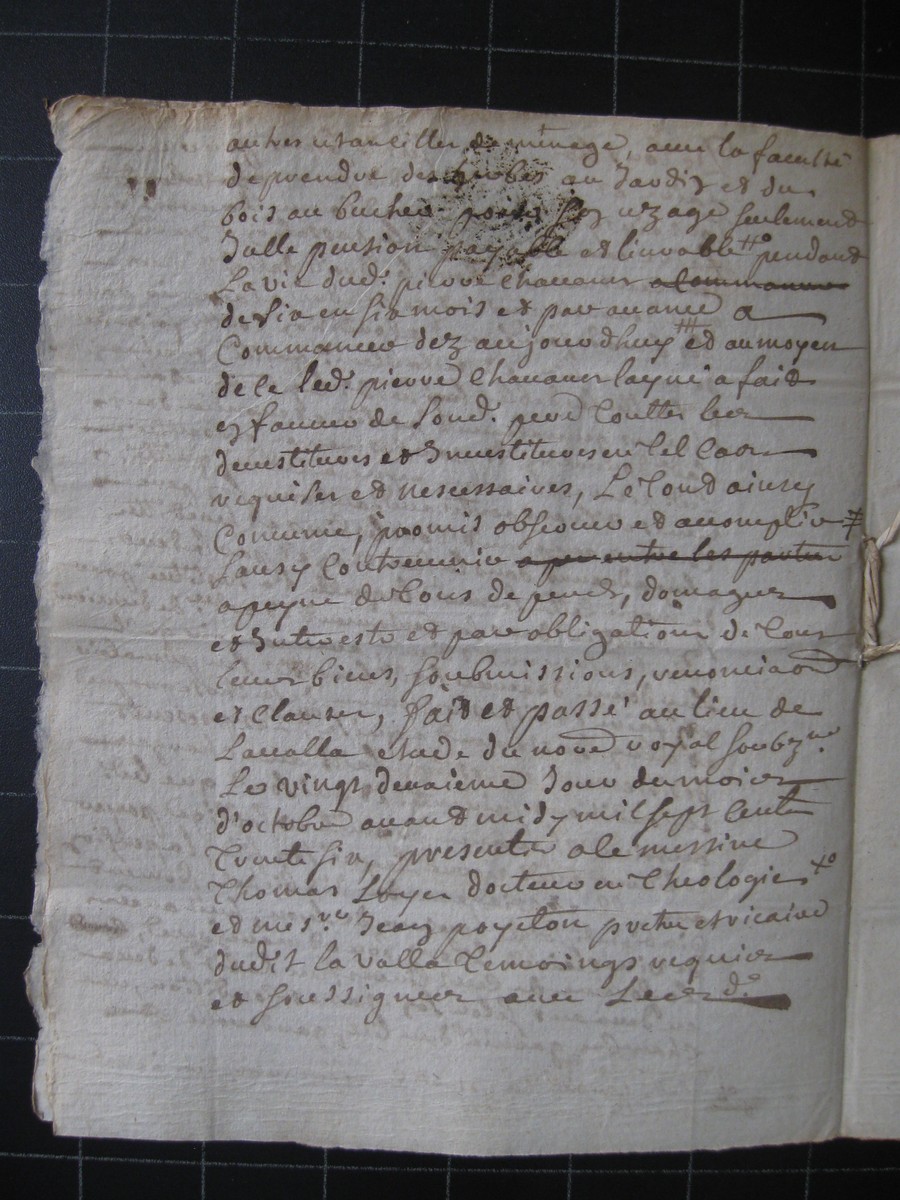 autres utancilles de menage, avec la faculté
de prendre des herbes au Jardin et du
bois au bucher pour son uzage seulement
Jalle pension payable et livrable #° pendant
La vie dud. pierre Chavanes a commancer
de six en six mois et par avance a
Commancer dez aujourdhuy ### et aumoyen
de ce led. pierre Chavanes layné a fait
en faveur de sond. pere touttes les
devestitures et Investitures en tel cas
requises et nescessaires, Le tout ainsy
Convenu, promis observer et accomplir #
sans y Contrevenir a par entre les parties
a peyne de tous depends, domages
et Interests et par obligations de tous
leurs biens, soubmissions, renonciaons
et Clauses, fait et passé au lieu de
Lavalla etude du nore royal soubzné
Le vingt deuxième Jour du mois
d'octobre avant midy mil sept cents
trente six, presents a ce messire
Thomas Loyer docteur en Theologie x°
et mesre Jean poyeton pretre et vicaire
dudit la Valla temoings requis
et soussignes avec Lesd.